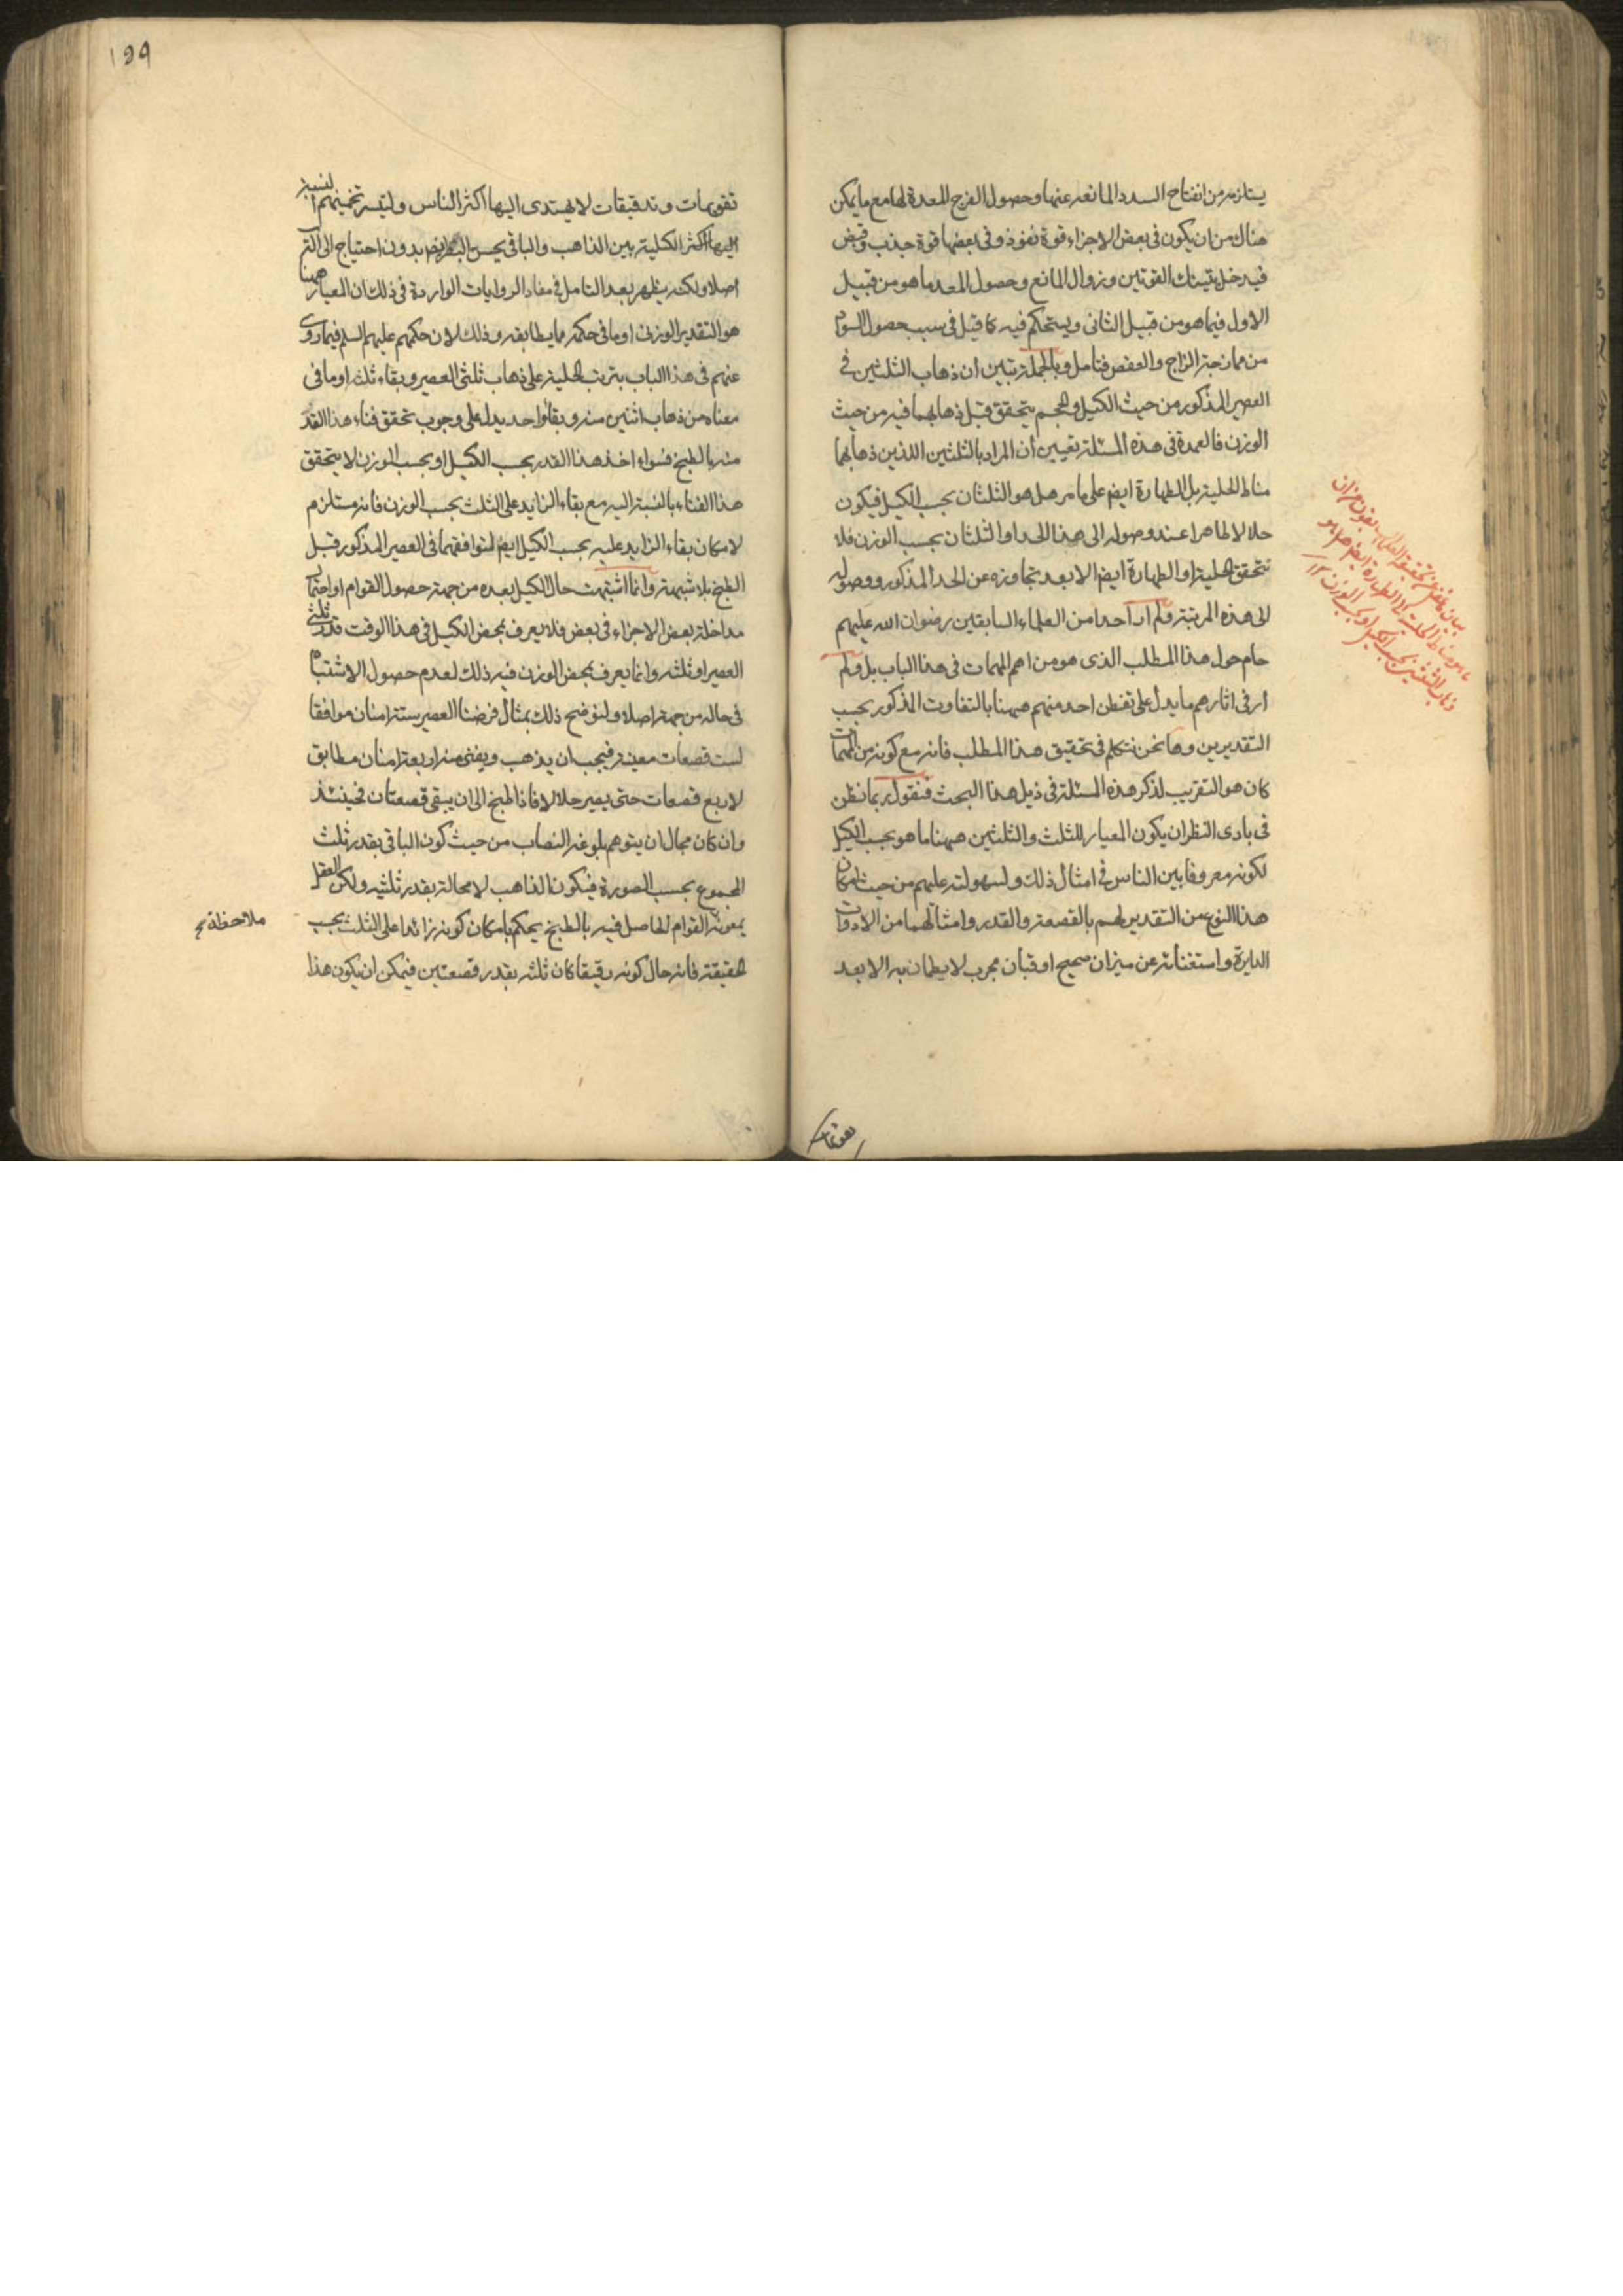 يستلزمه من انفتاح السدد المانعة عنها وحصول الفرج المعدة لها مع ما يمكن
هناك من ان يكون في بعض الاجزاء قوة نفوذ وفي بعضها قوة جذب وقبض
فيدخل بتينك القوتين وزوال المانع وحصول المعد ما هو من قبيل
الاول فيما هو من قبيل الثاني ويستحكم فيه كما قيل في سبب حصول السواد
من ممازجة الزاج والعفص فتامل وبالجملة تبين أن ذهاب الثلثين في
العصير المذكور من حيث الكيل والحجم يتحقق قبل ذهابهما فيه من حيث
الوزن فالعمدة في هذه المسئلة تعيين أن المراد بالثلثين اللذين ذهابهما
مناط الحلية بل الطهارة ايضا على ما مر هل هو الثلثان بحسب الكيل فيكون
حلالا طاهرا عند وصوله الى هذا الحد او الثلثان بحسب الوزن فلا
تتحقق الحلية او الطهارة ايضا الا بعد تجاوزه عن الحد المذكور ووصوله
الى هذه المرتبة ولم ار أحدا من العلماء السابقين رضوان الله عليهم
حام حول هذا المطلب الذى هو من اهم المهمات في هذا الباب بل ولم
أر في اثارهم ما يدل على تفطن احد منهم ههنا بالتفاوت المذكور بحسب
التقديرين وها نحن نتكلم في تحقيق هذا المطلب فانه مع كونه من المهمات
كان هو التقريب لذكر هذه المسئلة في ذيل هذا البحث فنقول ربما نظن
في بادى النظر ان يكون المعيار للثلث والثلثين ههنا ما هو بحسب الكيل
لكونه معروفا بين الناس في امثال ذلك ولسهولته عليهم من حيث امكان
هذا النوع من التقدير لهم بالقصعة والقدر وامثالهما من الادوات
الدايرة واستغنائه عن ميزان صحيح او قبان مجرب لا يطمان به الا بعد
تقويمات
تقويمات وتدقيقات لا يهتدى اليها اكثر الناس وليتسر تخمينهم النسبة
اصلا ولكنه يظهر بعد التامل في مفاد الروايات الواردة في ذلك ان المعيار ههنا
هو التقدير الوزنى او ما في حكمه مما يطابقه وذلك لان حكمهم عليهم السلم فيما روى
عنهم في هذا الباب بترتب الحلية على ذهاب ثلثى العصير وبقاء ثلثه او ما في
معناه من ذهاب اثنين منه وبقاء واحد يدل على وجوب تحقق فناء هذا القدر
منه بالطبخ فسواء اخذ هذا القدر بحسب الكيل او بحسب الوزن لا يتحقق
هذا الفناء بالنسبة اليه مع بقاء الزايد على الثلث بحسب الوزن فانه مستلزم
لامكان بقاء الزايد عليه بحسب الكيل ايضا لتوافقهما في العصير المذكور قبل
الطبخ بلا شبهة وانما اشتبهت حال الكيل بعده من جهة حصول القوام او احتمال
مداخلة بعض الاجزاء في بعض فلا يعرف بمحض الكيل في هذا الوقت قدر ثلثى
العصير او ثلثه وانما يعرف بمحض الوزن فيه ذلك لعدم حصول الاشتباه
في حاله من جهة اصلا ولنوضح ذلك بمثال فرضنا العصير ستة امنان موافقا
لست قصعات معينة فيجب ان يذهب ويفنى منه اربعة امنان مطابق
لاربع قصعات حتى يصير حلالا فاذا طبخ الى ان يبقى قصعتان فحينئذ
وان كان مجال ان يتوهم بلوغه النصاب من حيث كون الباقي بقدر ثلث
المجموع بحسب الصورة فيكون الذاهب لا محالة بقدر ثلثيه ولكن العقل
بمعونة القوام الحاصل فيه بالطبخ يحكم بامكان كونه زائدا على الثلث بحسب
ملاحظة
الحقيقة فانه حال كونه رقيقا كان ثلثه بقدر قصعتين فيمكن ان يكون هذا